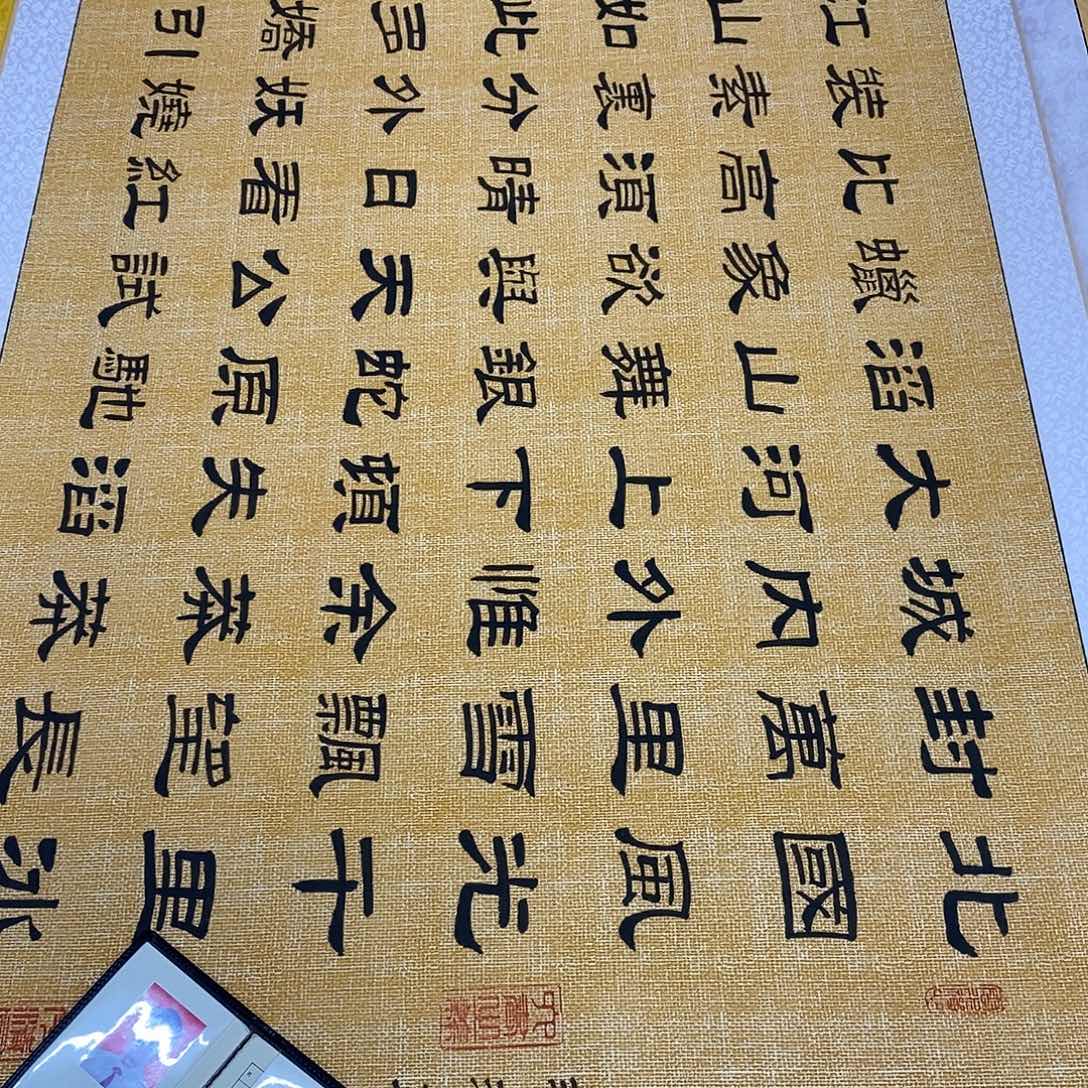 北國風光千里冰
封萬里雪飄望長
城內外惟余莽莽
大河上下頓失滔
滔山舞銀蛇原馳
蠟象欲與天公試
比高須晴日看紅
裝素裹分外妖嬈
江山如此多嬌引